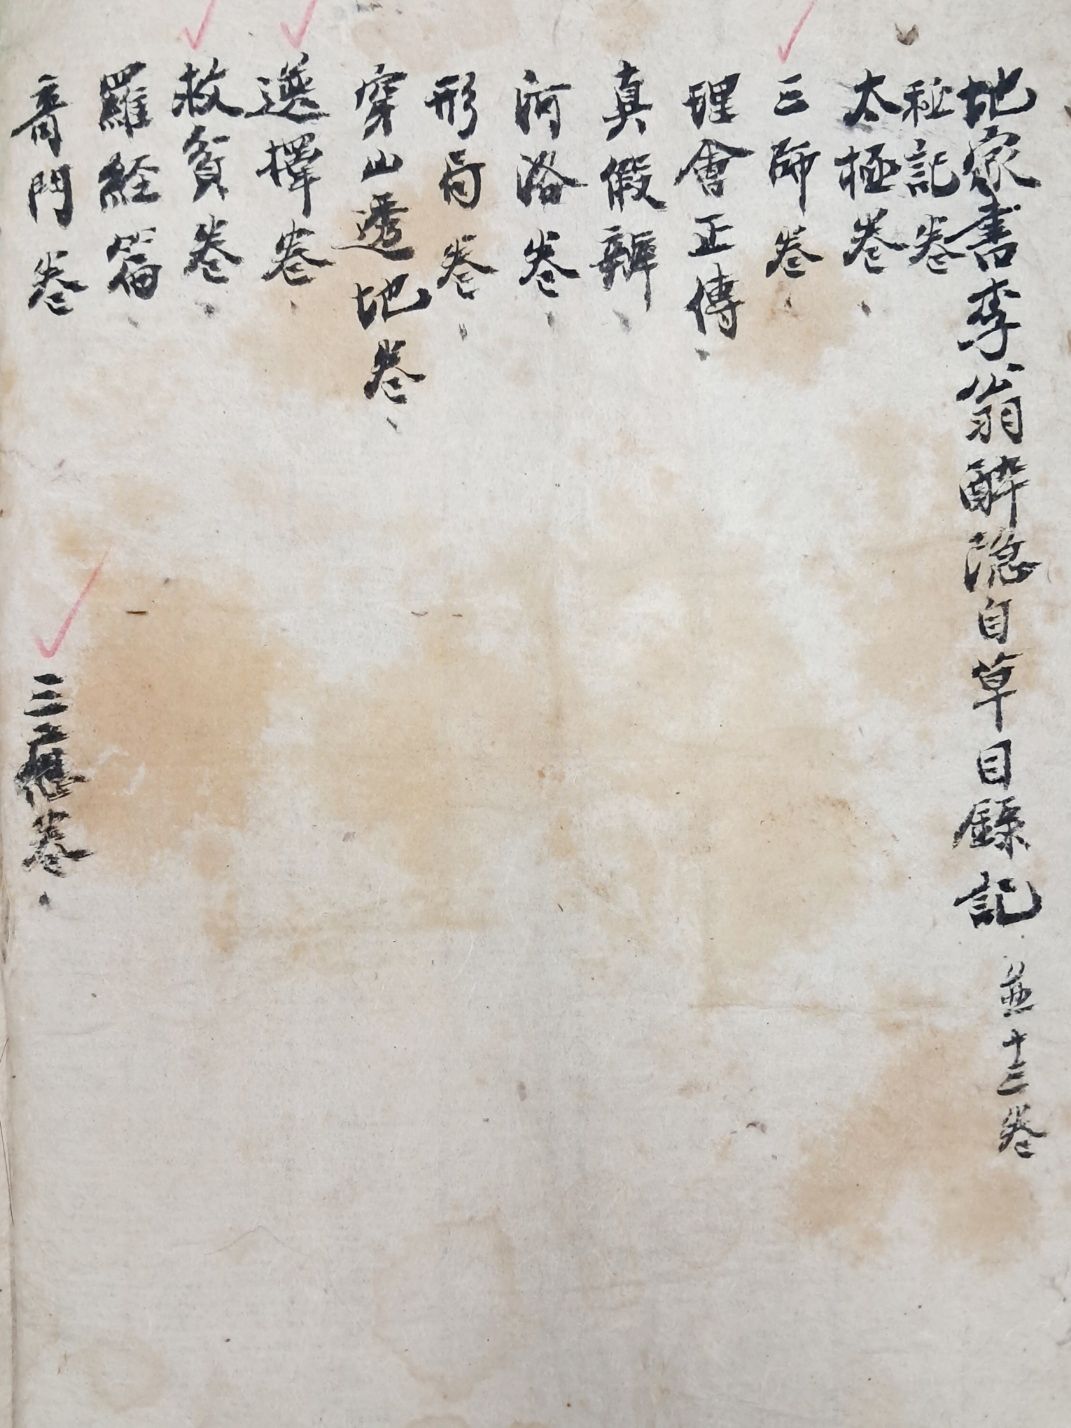 地家書李翁醉隐自草目錄記 並十三卷
秘記卷
太極卷
三師卷
理會正傳
真假辨
河洛卷
形局卷
穿山透地卷
選擇卷
救貧卷
羅經篇
奇門卷
三應卷